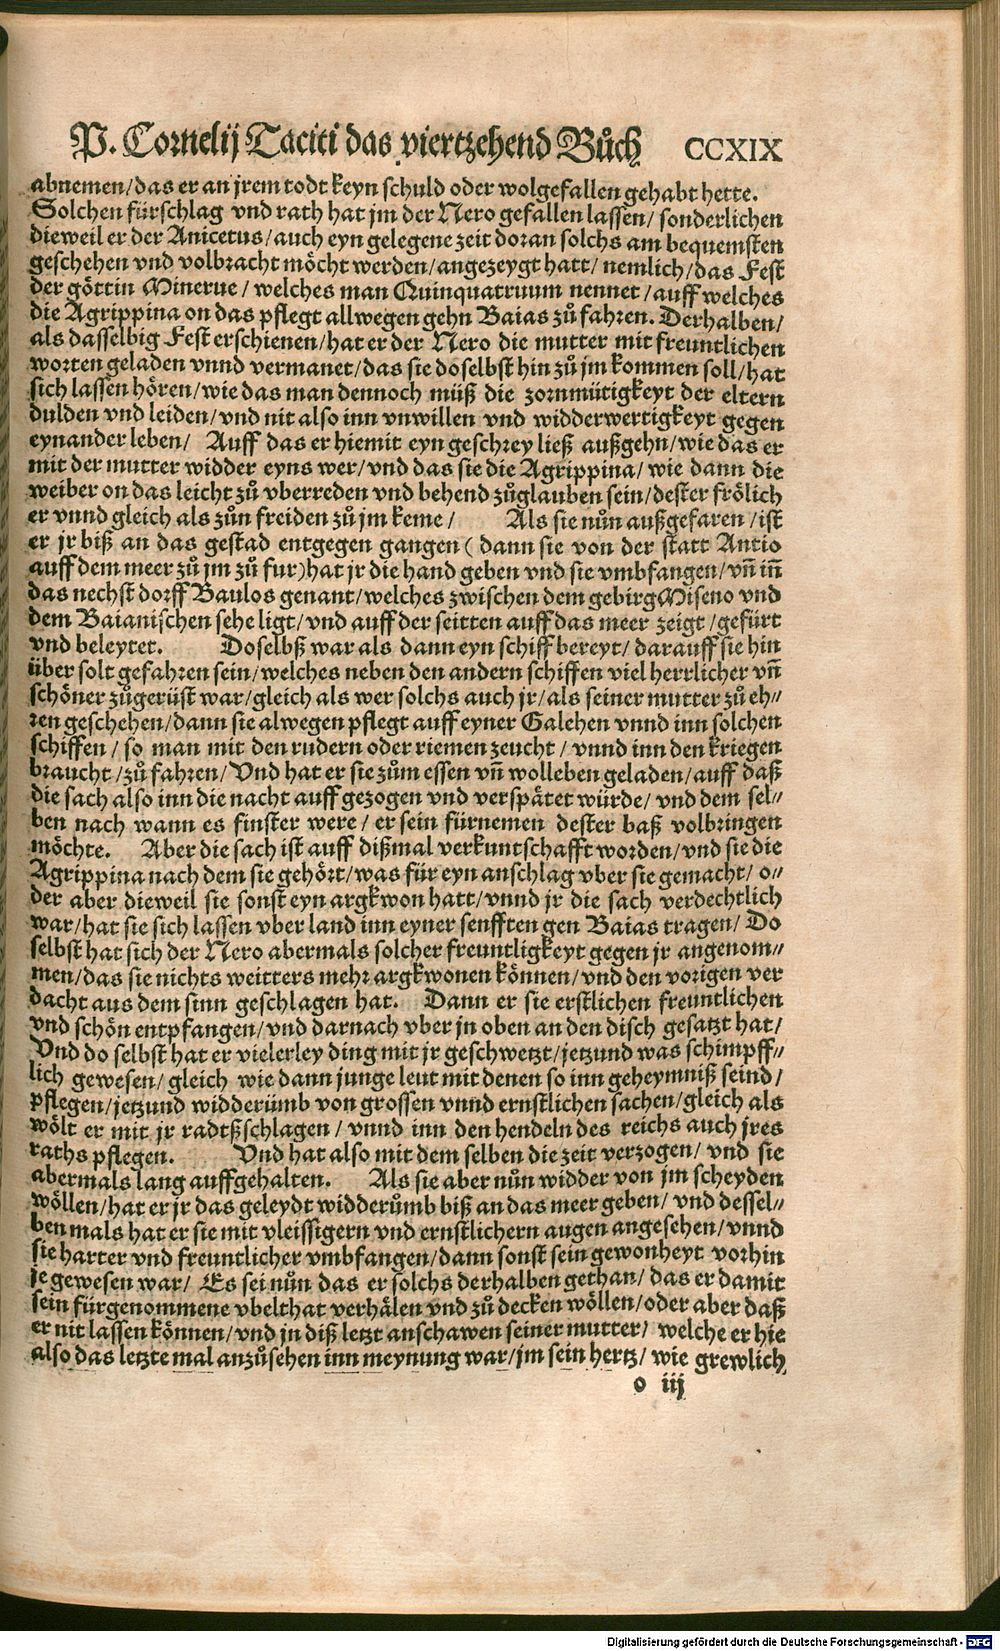 P. Cornelij Taciti das viertzehend Bůch CCXIX
abnemen/das er an jrem todt keyn schuld oder wolgefallen gehabt hette.
Solchen fürschlag vnd rath hat jm der Nero gefallen lassen/ sonderlichen
dieweil er der Anicetus/auch eyn gelegene zeit doran solchs am bequemsten
geschehen vnd volbracht möcht werden/angezeygt hatt/ nemlich/das Fest
der göttin Minerue/ welches man Quinquatruum nennet/auff welches
die Agrippina on das pflegt allwegen gehn Baias zů fahren. Derhalben/
als dasselbig Fest erschienen/hat er der Nero die mutter mit freuntlichen
worten geladen vnnd vermanet/das sie doselbst hin zů jm kommen soll/hat
sich lassen hören/wie das man dennoch müß die zornmütigkeyt der eltern
dulden vnd leiden/vnd nit also inn vnwillen vnd widderwertigkeyt gegen
eynander leben/ Auff das er hiemit eyn geschrey ließ außgehn/wie das er
mit der mutter widder eyns wer/vnd das sie die Agrippina/wie dann die
weiber on das leicht zů vberreden vnd behend zůglauben sein/dester frölich
er vnnd gleich als zůn freiden zů jm keme/ Als sie nůn außgefaren/ist
er jr biß an das gestad entgegen gangen (dann sie von der statt Antio
auff dem meer zů jm zů fur) hat jr die hand geben vnd sie vmbfangen/vñ iñ
das nechst dorff Baulos genant/welches zwischen dem gebirg Miseno vnd
dem Baianischen sehe ligt/vnd auff der seitten auff das meer zeigt/gefürt
vnd beleytet. Doselbß war als dann eyn schiff bereyt/darauff sie hin
über solt gefahren sein/welches neben den andern schiffen viel herrlicher vñ
schöner zůgerüst war/gleich als wer solchs auch jr/als seiner mutter zů eh⸗
ren geschehen/dann sie alwegen pflegt auff eyner Galehen vnnd inn solchen
schiffen/so man mit den rudern oder riemen zeucht/vnnd inn den kriegen
braucht/zů fahren/Vnd hat er sie zům essen vñ wolleben geladen/auff daß
die sach also inn die nacht auff gezogen vnd verspätet würde/vnd dem sel⸗
ben nach wann es finster were/er sein fürnemen dester baß volbringen
möchte. Aber die sach ist auff dißmal verkuntschafft worden/vnd sie die
Agrippina nach dem sie gehört/was für eyn anschlag vber sie gemacht/o⸗
der aber dieweil sie sonst eyn argkwon hatt/vnnd jr die sach verdechtlich
war/hat sie sich lassen vber land inn eyner senfften gen Baias tragen/Do
selbst hat sich der Nero abermals solcher freuntligkeyt gegen jr angenom⸗
men/das sie nichts weitters mehr argkwonen können/vnd den vorigen ver
dacht aus dem sinn geschlagen hat. Dann er sie erstlichen freuntlichen
vnd schön entpfangen/vnd darnach vber jn oben an den disch gesatzt hat/
Vnd do selbst hat er vielerley ding mit jr geschwetzt/jetzund was schimpff⸗
lich gewesen/gleich wie dann junge leut mit denen so inn geheymniß seind/
pflegen/jetzund widderümb von grossen vnnd ernstlichen sachen/gleich als
wölt er mit jr radtßschlagen/vnnd inn den hendeln des reichs auch jres
raths pflegen. Vnd hat also mit dem selben die zeit verzogen/vnd sie
abermals lang auffgehalten. Als sie aber nůn widder von jm scheyden
wöllen/hat er jr das geleydt widderůmb biß an das meer geben/vnd dessel⸗
ben mals hat er sie mit vleissigern vnd ernstlichern augen angesehen/vnnd
sie harter vnd freuntlicher vmbfangen/dann sonst sein gewonheyt vorhin
je gewesen war/ Es sei nůn das er solchs derhalben gethan/das er damit
sein fürgenommene vbelthat verhälen vnd zů decken wöllen/oder aber daß
er nit lassen können/vnd jn diß letzt anschawen seiner mutter/ welche er hie
also das letzte mal anzůsehen inn meynung war/jm sein hertz/ wie grewlich
o iij
Digitalisierung gefördert durch die Deutsche Forschungsgemeinschaft - DFG